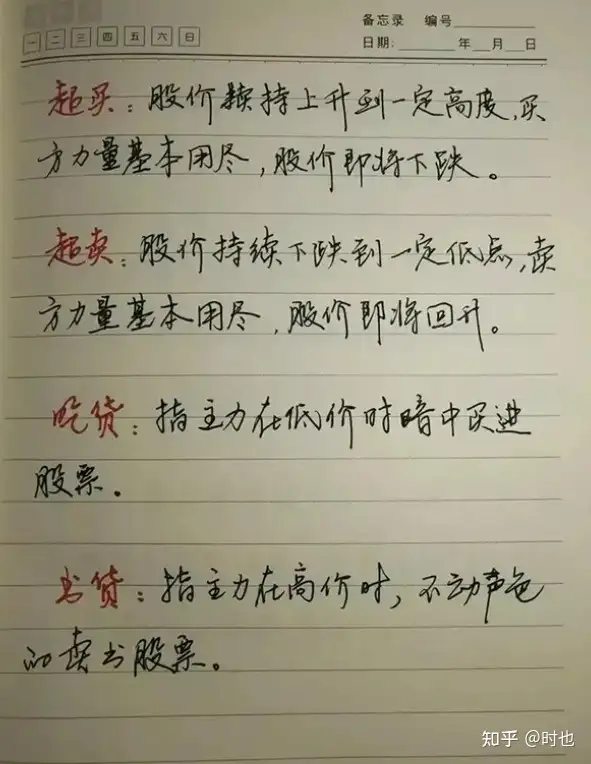 备忘录 编号
一 二 三 四 五 六 日
日期: 年 月 日
超买：股价续持上升到一定高度,买
方力量基本用尽,股价即将下跌。
超卖：股价持续下跌到一定低点,卖
方力量基本用尽,股价即将回升。
吃货：指主力在低价时暗中买进
股票。
出货：指主力在高价时,不动声色
的卖出股票。
知乎 @时也